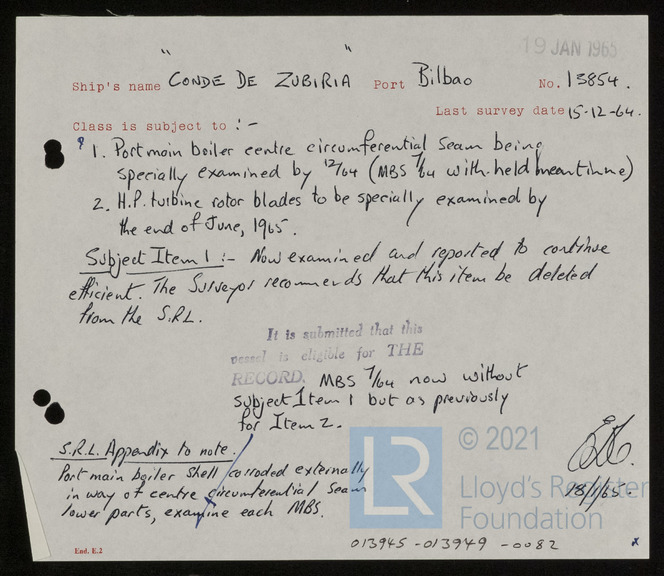 19 JAN 1965
Ship's name "CONDE DE ZUBIRIA" Port Bilbao No. 13854.
Last survey date 15-12-64.
Class is subject to :-
1. Port main boiler centre circumferential seam being
specially examined by 12/64 (MBS 7/64 with-held meantime)
2. H.P. turbine rotor blades to be specially examined by
the end of June, 1965.
Subject Item 1 :- Now examined and reported to continue
efficient. The Surveyor recommends that this item be deleted
from the S.R.L.
It is submitted that this
vessel is eligible for THE
RECORD. MBS 7/64 now without
subject Item 1 but as previously
for Item 2.
S.R.L. Appendix to note.
Port main boiler shell corroded externally
in way of centre circumferential seam
lower parts, examine each MBS.
18/1/65.
LR
© 2021
Lloyd's Register
Foundation
End. E.2
013945-013949-0082
x